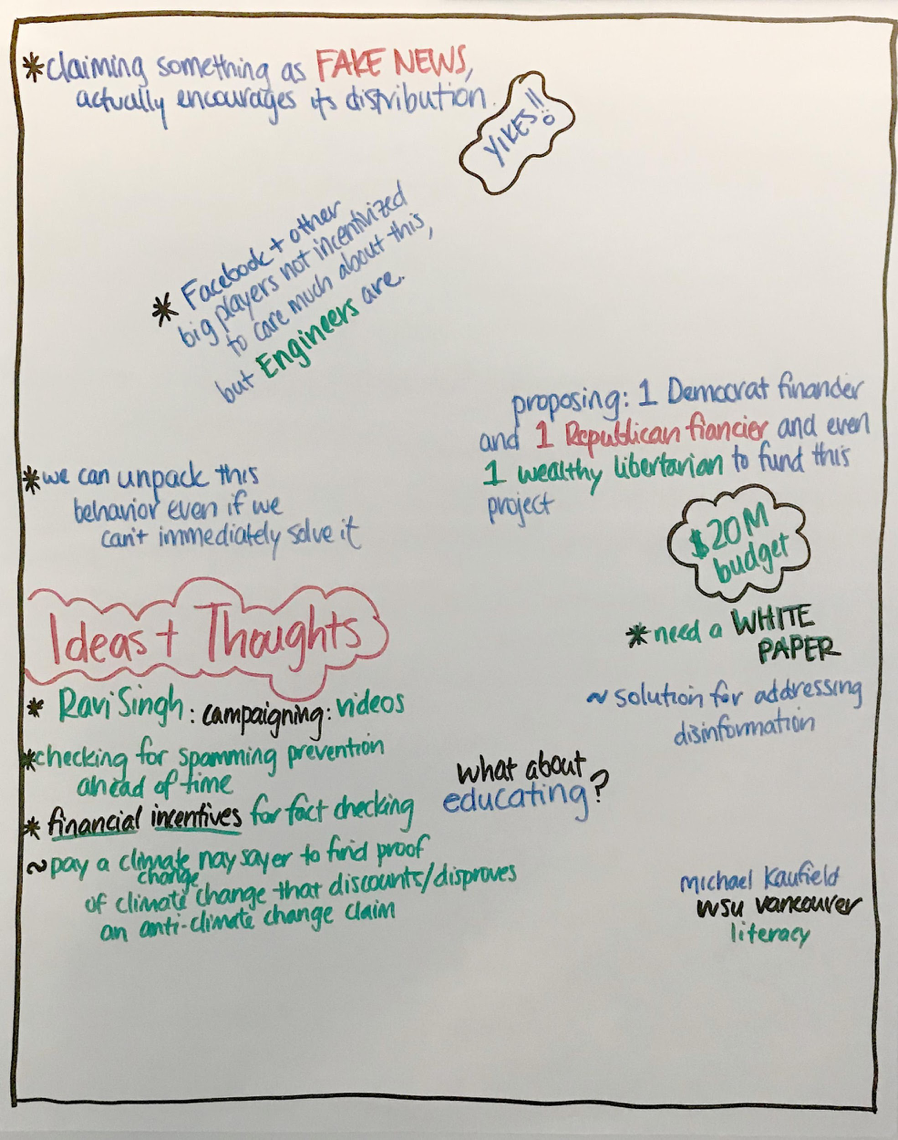 *claiming something as FAKE NEWS,
actually encourages its distribution.
YIKES!!
* Facebook + other
big players not incentivized
to care much about this,
but Engineers are.
proposing: 1 Democrat finander
and 1 Republican fiancier and even
1 wealthy libertarian to fund this
project
$20M
budget
*we can unpack this
behavior even if we
can't immediately solve it
*need a WHITE
PAPER
~ solution for addressing
disinformation
Ideas + Thoughts
* Ravi Singh : campaigning : videos
*checking for spamming prevention
ahead of time
* financial incentives for fact checking
~ pay a climate nay sayer to find proof
change
of climate change that discounts/disproves
an anti-climate change claim
what about
educating?
Michael Kaufield
WSU Vancouver
literacy